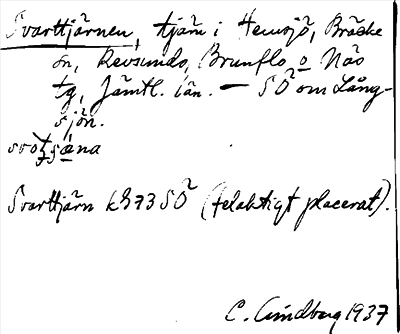 Svarttjärnen, tjärn i Hemsjö, Bräcke
sn, Revsunds, Brunflo o Näs
tg, Jämtl. län. — SÖ om Lång-
sjön.
svot̶sæna
Svarttjärn k 873 SÖ (felaktigt placerat).
C. Lindberg 1937